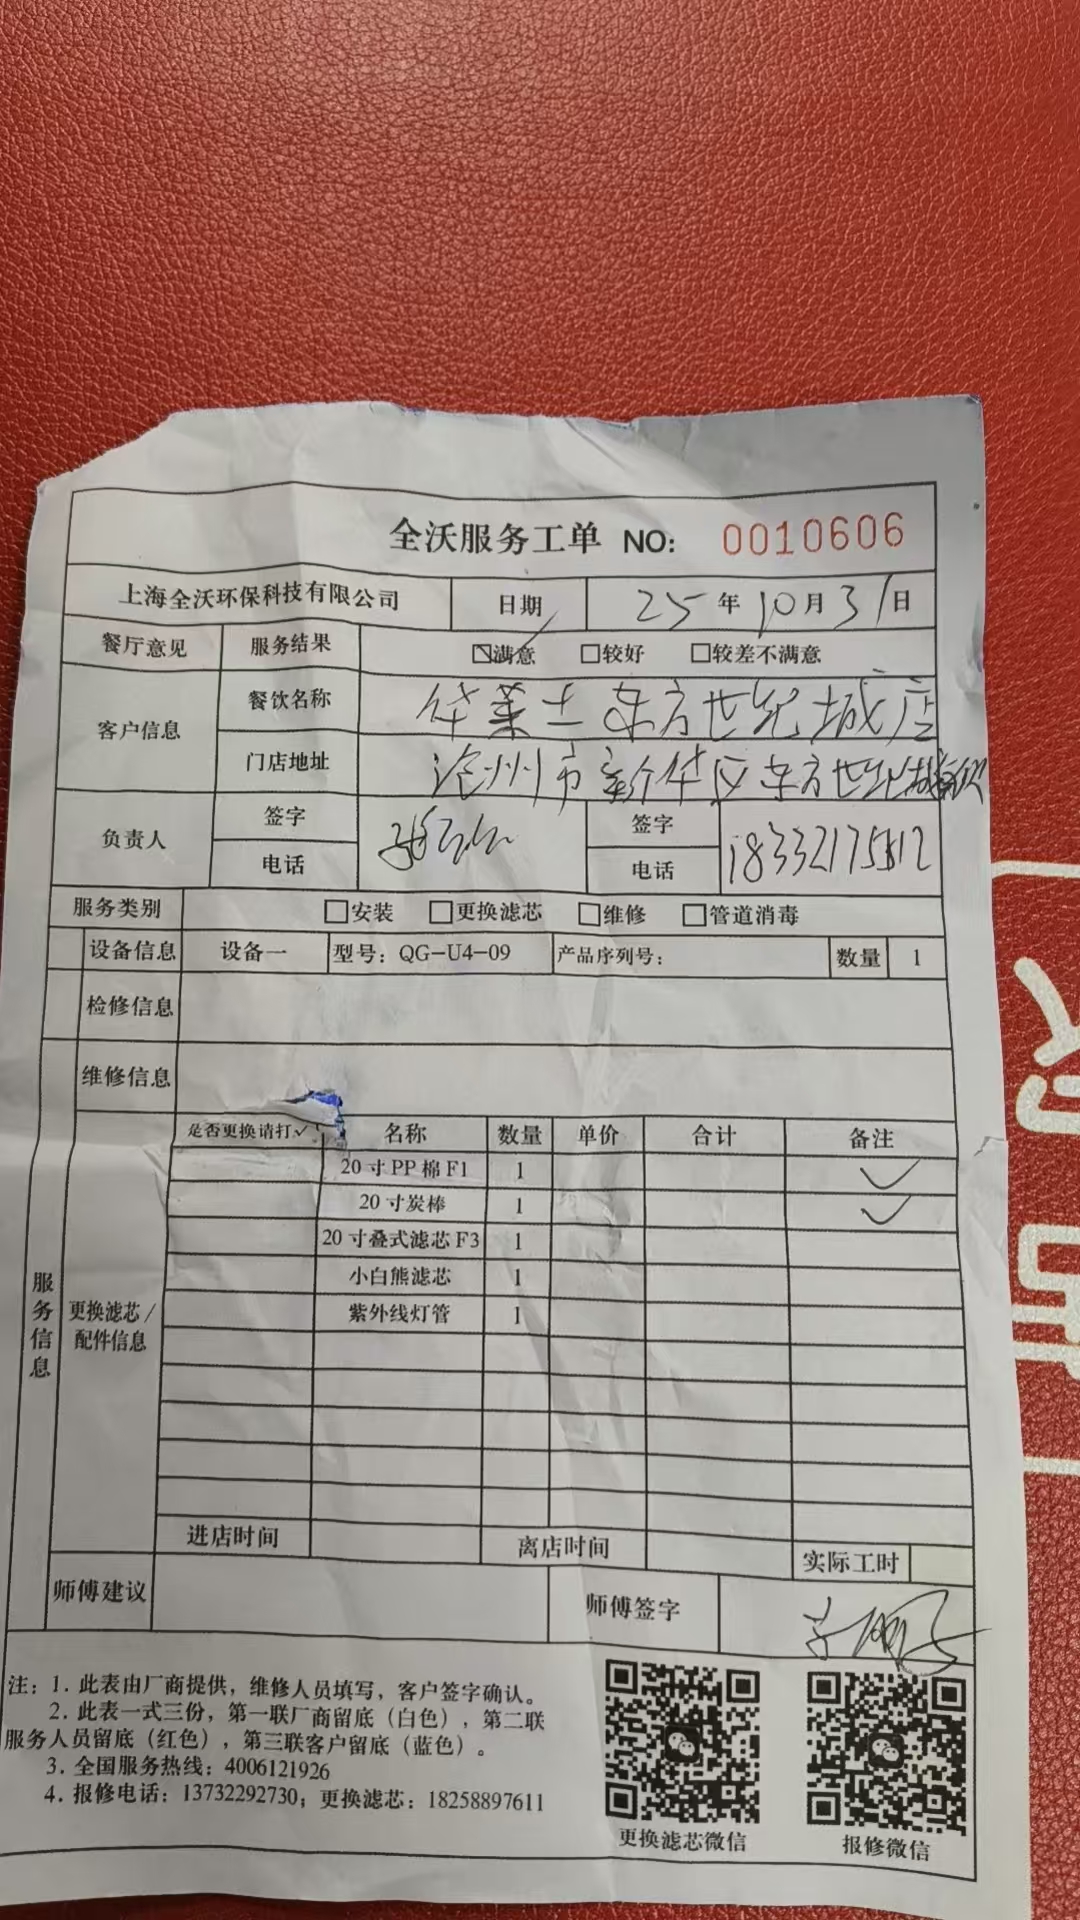 全沃服务工单 NO: 0010606
上海全沃环保科技有限公司 日期 25年10月31日
餐厅意见 服务结果 ☑满意 □较好 □较差不满意
客户信息 餐饮名称 华莱士东方世纪城店
门店地址 沧州市新华区东方世纪城
负责人 签字 签字
电话 电话 18332175512
服务类别 □安装 □更换滤芯 □维修 □管道消毒
设备信息 设备一 型号：QG-U4-09 产品序列号： 数量 1
检修信息
维修信息
服务信息
更换滤芯/配件信息
是否更换请打✓ 名称 数量 单价 合计 备注
20寸PP棉F1 1 ✓
20寸炭棒 1 ✓
20寸叠式滤芯F3 1
小白熊滤芯 1
紫外线灯管 1
进店时间 离店时间 实际工时
师傅建议 师傅签字
注：1. 此表由厂商提供，维修人员填写，客户签字确认。
2. 此表一式三份，第一联厂商留底（白色），第二联
服务人员留底（红色），第三联客户留底（蓝色）。
3. 全国服务热线：4006121926
4. 报修电话：13732292730；更换滤芯：18258897611
更换滤芯微信 报修微信